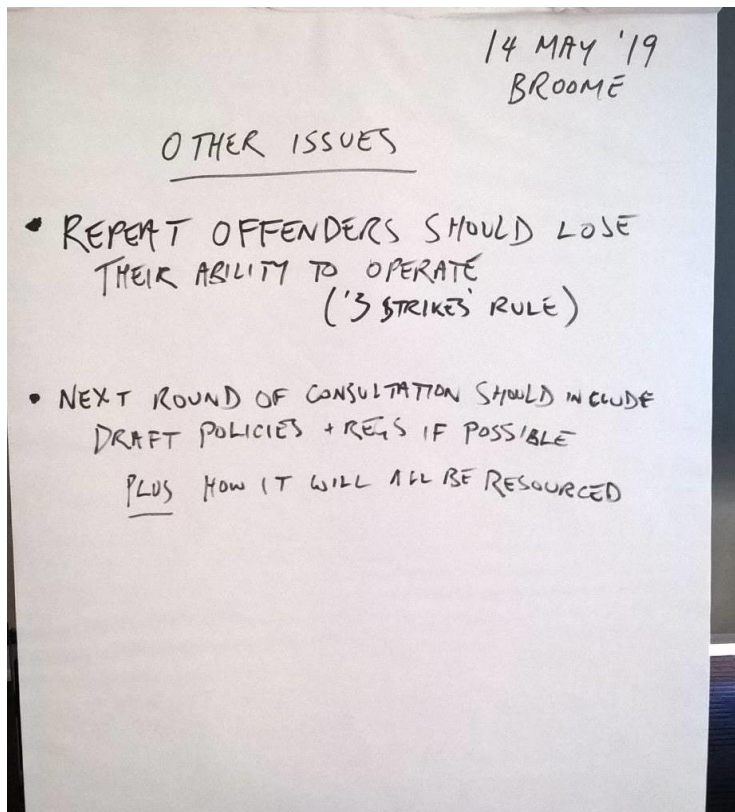 14 MAY '19
BROOME
OTHER ISSUES
• REPEAT OFFENDERS SHOULD LOSE
THEIR ABILITY TO OPERATE
('3 STRIKES' RULE)
• NEXT ROUND OF CONSULTATION SHOULD INCLUDE
DRAFT POLICIES + REGS IF POSSIBLE
PLUS HOW IT WILL ALL BE RESOURCED